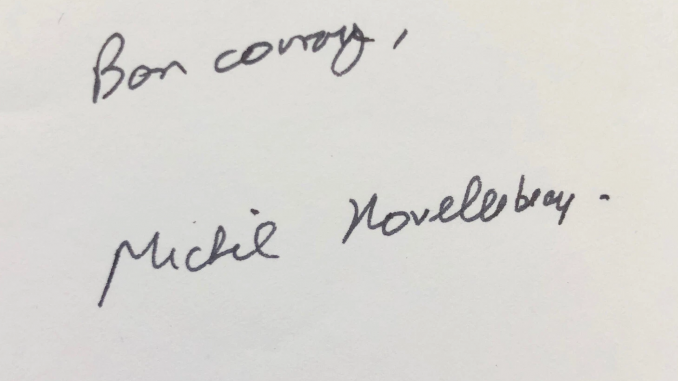 Bon courage,
Michel Houellebecq.